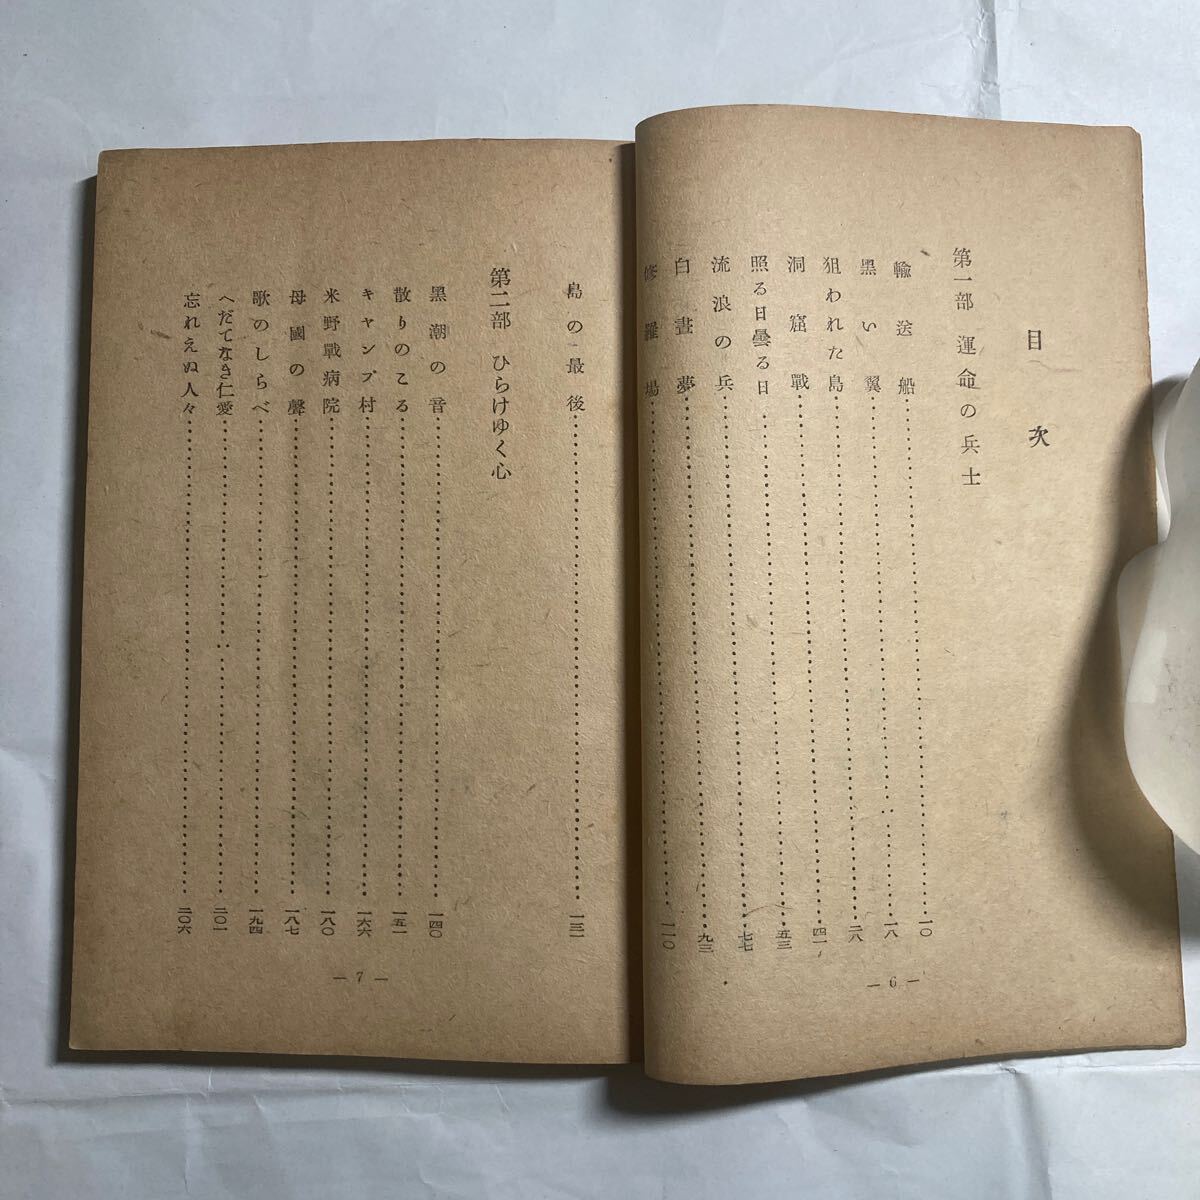 目次
第一部 運命の兵士
輸送船……一〇
黑い翼……一八
狙われた島……二八
洞窟戰……四一
照る日曇る日……五三
流浪の兵……七七
白晝夢……九三
修羅場……一一〇
— 6 —
島の最後……一三一
第二部 ひらけゆく心
黑潮の音……一四〇
散りのこる……一五一
キャンプ村……一六六
米野戰病院……一八〇
母國の聲……一八七
歌のしらべ……一九四
へだてなき仁愛……二〇一
忘れえぬ人々……二〇六
— 7 —